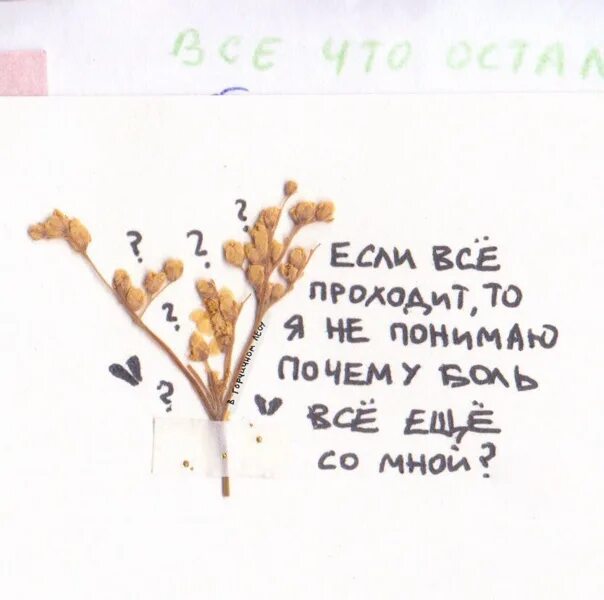 ВСЕ ЧТО ОСТАЛ
?
?
?
?
?
ЕСЛИ ВСЁ
ПРОХОДИТ, ТО
Я НЕ ПОНИМАЮ
ПОЧЕМУ БОЛЬ
ВСЁ ЕЩЁ
СО МНОЙ?
В ГОРЧИЧНОМ ЛЕСУ